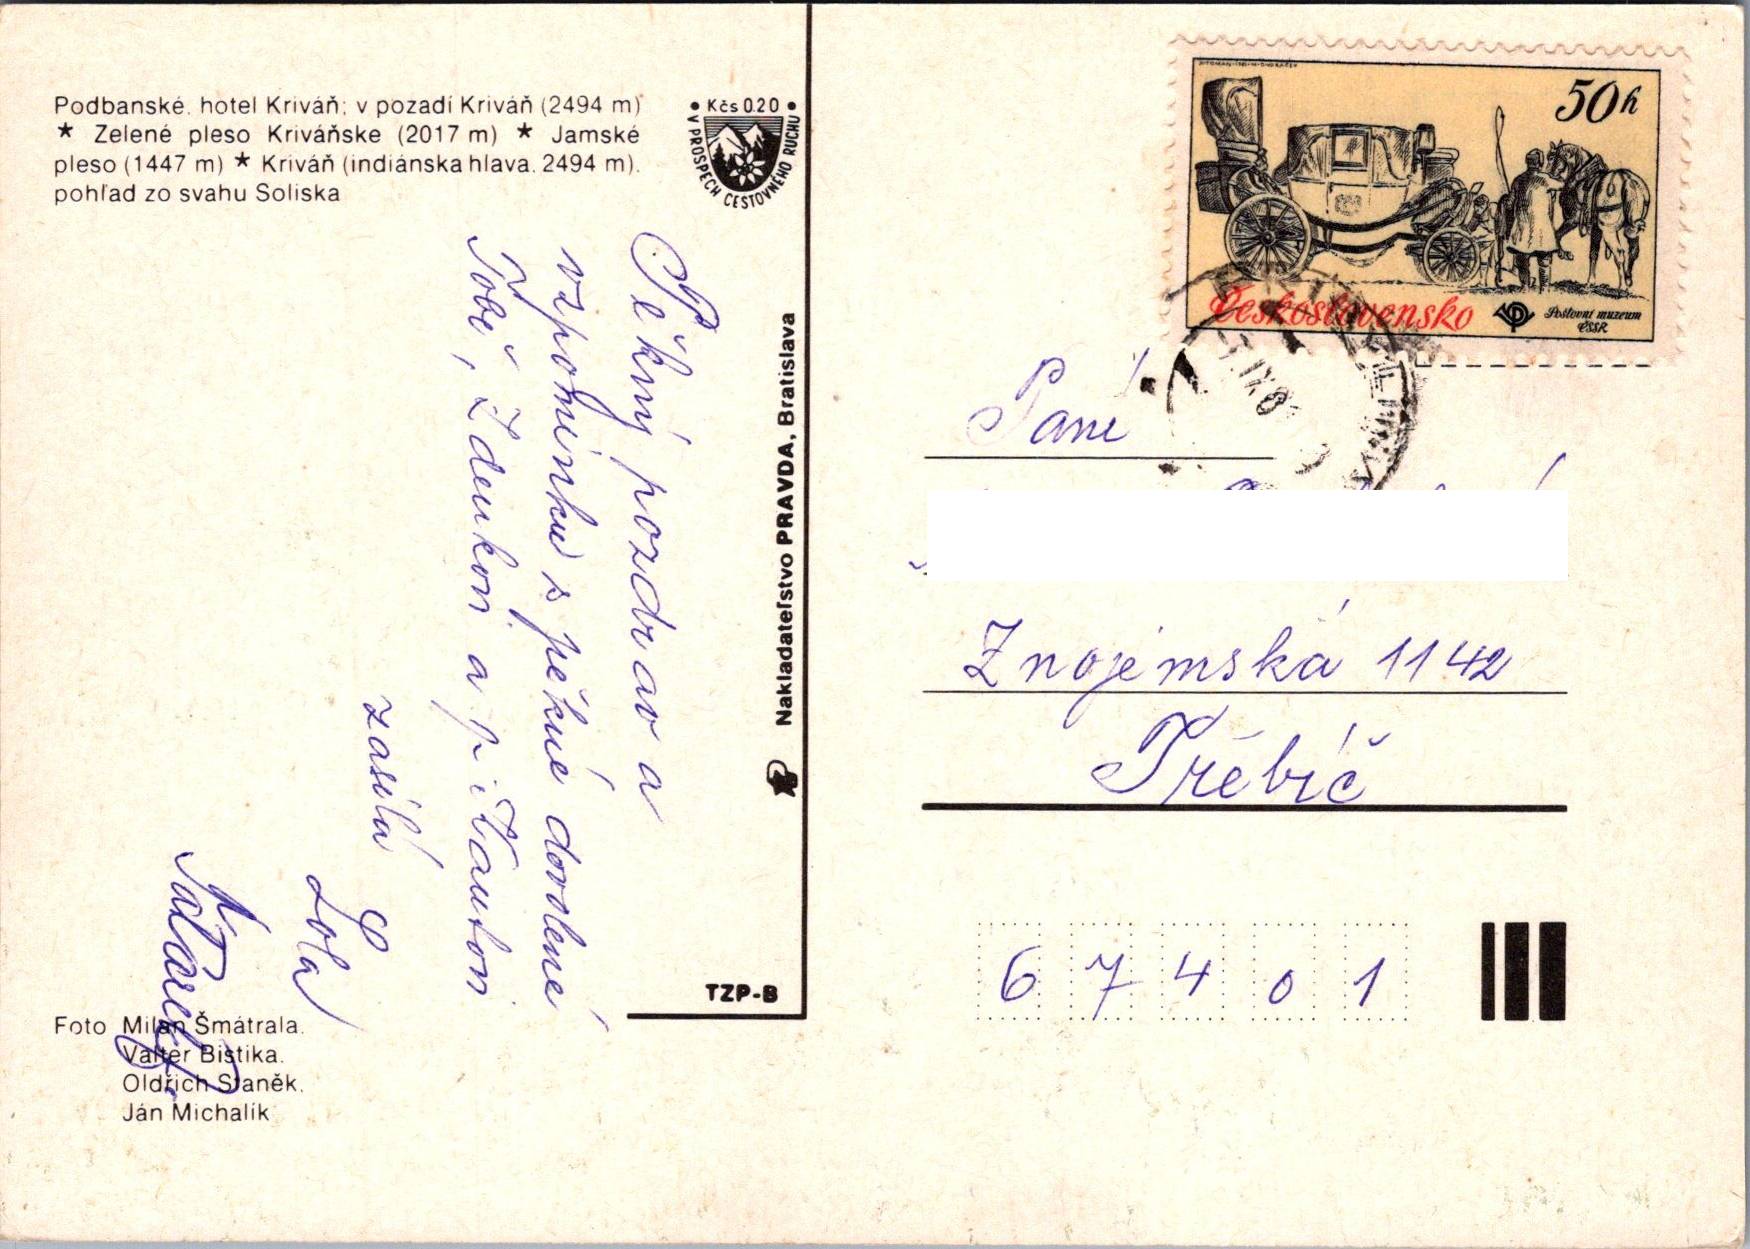 Podbanské, hotel Kriváň; v pozadí Kriváň (2494 m)
★ Zelené pleso Kriváňske (2017 m) ★ Jamské
pleso (1447 m) ★ Kriváň (indiánska hlava, 2494 m),
pohľad zo svahu Soliska
• Kčs 0,20 •
V PROSPECH CESTOVNÉHO RUCHU
Pěkný pozdrav a
vzpomínku s pěkné dovolené
Tobě, Zdenkovi a p.
zasílá
Lola
Nakladateľstvo PRAVDA, Bratislava
TZP-B
Foto Milan Šmátrala,
Valter Bistika,
Oldřich Staněk,
Ján Michalík
50h
Československo
Poštovní muzeum
ČSSR
Paní
Znojemská 1142
Třebíč
67401